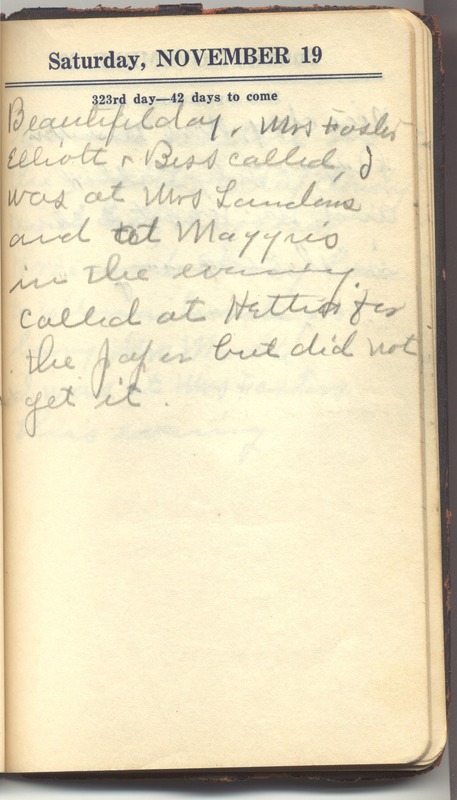 Saturday, NOVEMBER 19
323rd day—42 days to come
Beautiful day, Mrs Foster
Elliott & Bess called, I
was at Mrs Landons
and at Maggies
in the evening.
called at Hetties for
the paper but did not
get it.